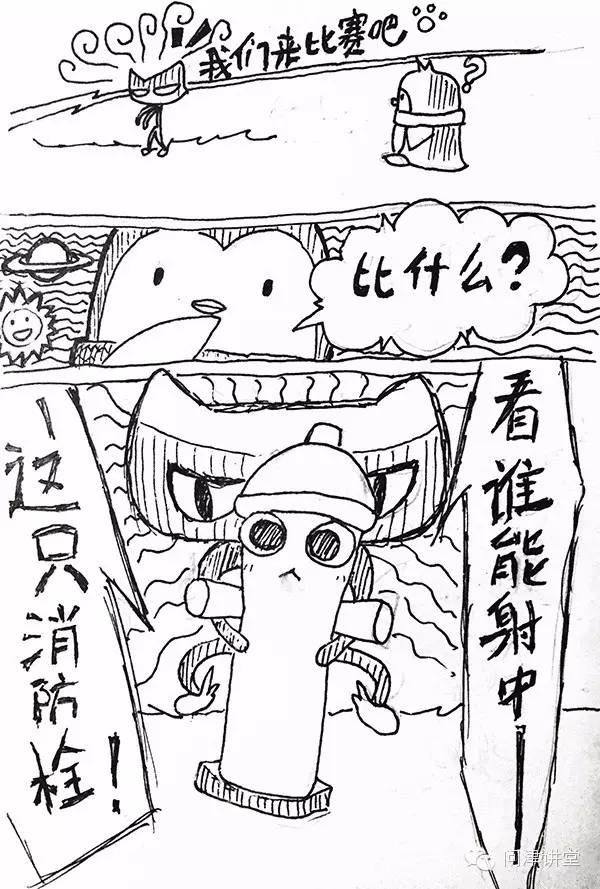 我们来比赛吧
?
比什么?
看谁能射中—
—这只消防栓!
问津讲堂